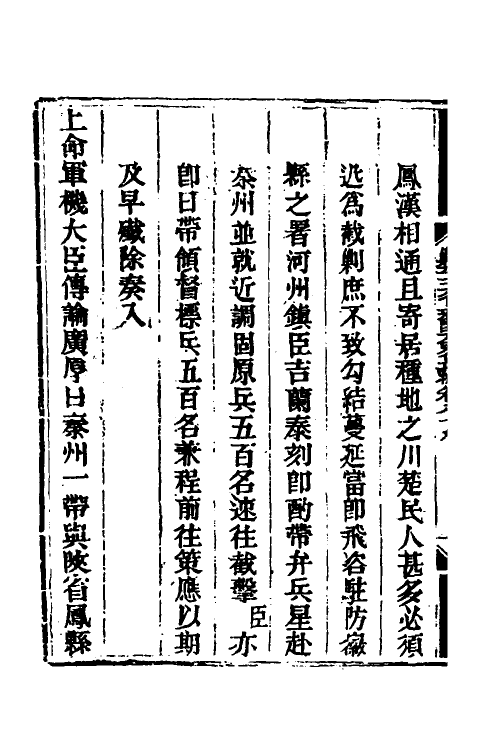 鳳漢相通且寄居種地之川楚民人甚多必須
迅爲截剿庶不致勾結蔓延當即飛咨駐防徽
縣之署河州鎭臣吉蘭泰刻卽酌帶弁兵星赴
秦州並就近調固原兵五百名速往截擊臣亦
卽日帶領督標兵五百名兼程前往策應以期
及早殲除奏入
上命軍機大臣傳諭廣厚曰秦州一帶與陝省鳳縣